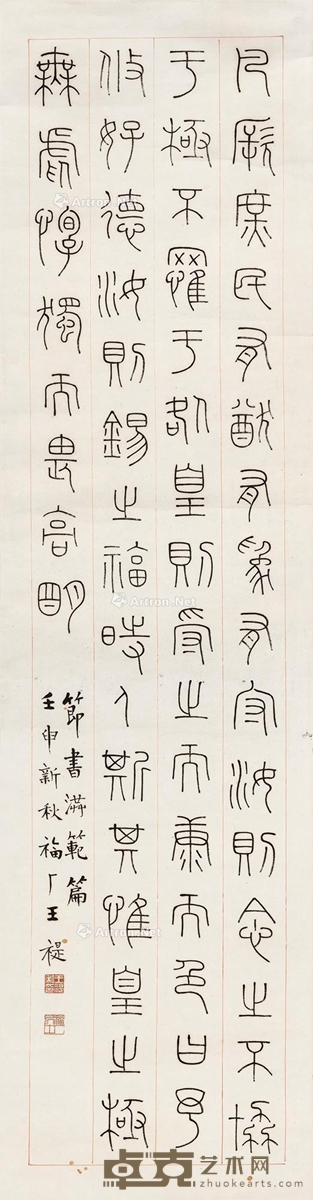 凡厥庶民有猷有為有守汝則念之不協
于極不罹于咎皇則受之而康而色曰予
攸好德汝則錫之福時人斯其惟皇之極
無虐惸獨而畏高明
節書洪範篇
壬申新秋福厂王禔
Artron.Net
Artron.Net
Artron.Net
卓克艺术网
www.zhuokearts.com